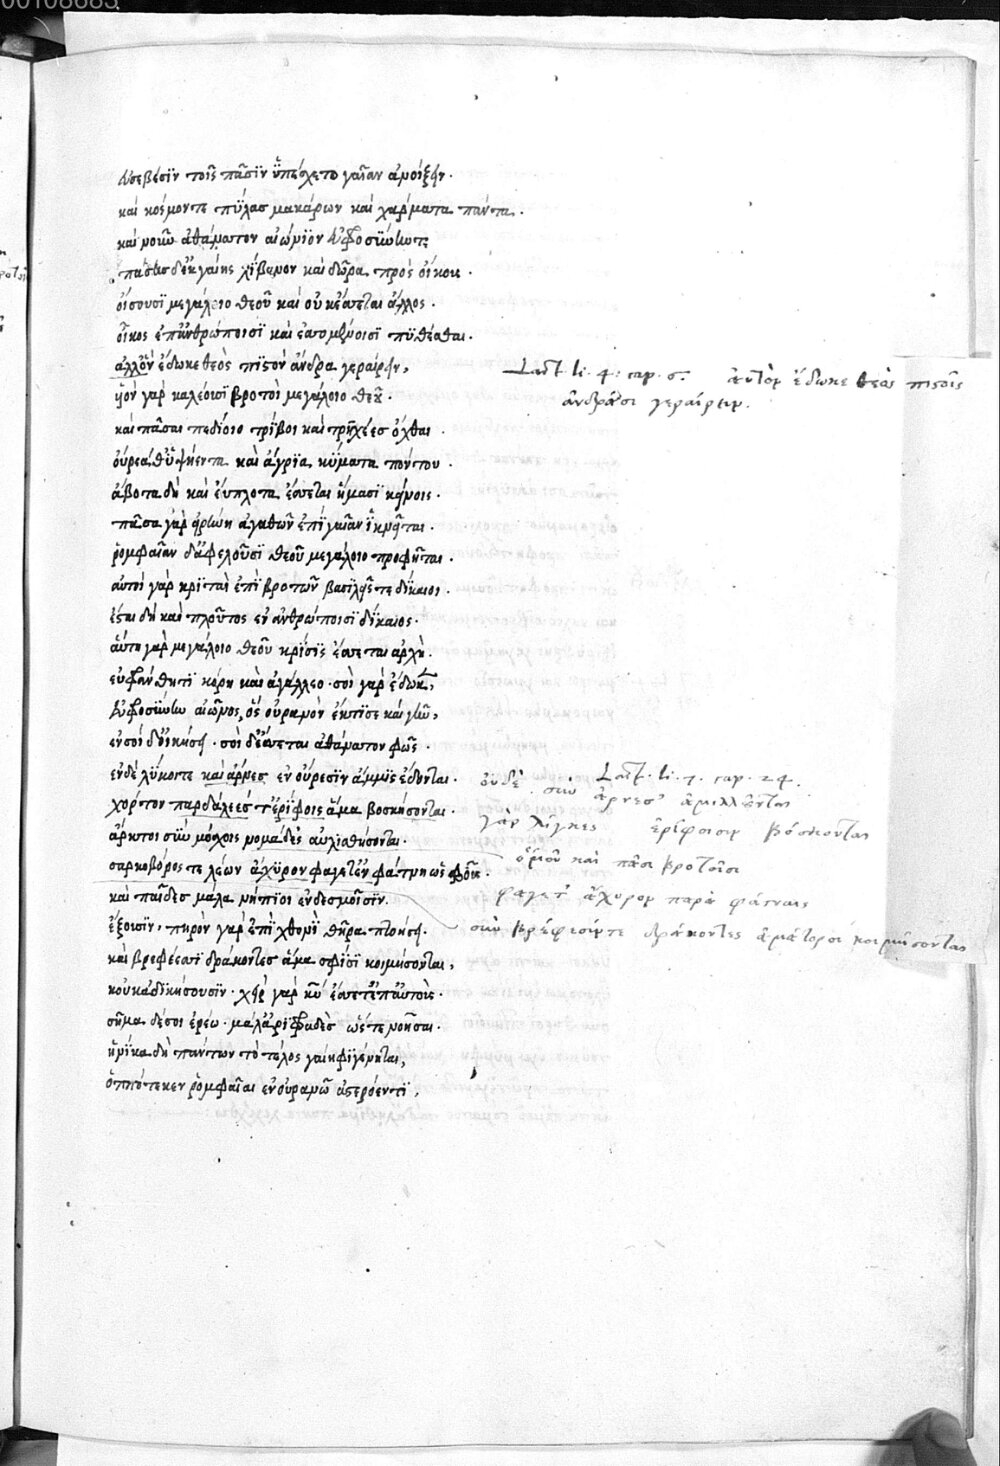 00108683
εὐσεβέσϊν τοῖς πᾶσϊν ὑπέσχετο γαῖαν ἀνοίξειν.
καὶ κόσμον τε πύλας μακάρων καὶ χάρματα πάντα.
καὶ νοῦν ἀθάνατον αἰώνϊον εὐφροσύνην τε
πάσης δ' ἐκ γαίης λίβανον καὶ δῶρα πρὸς οἴκους.
οἴσουσϊ μεγάλοιο θεοῦ καὶ οὐκ ἔσσεται ἄλλος.
οἶκος ἐπ' ἀνθρώποισϊ καὶ ἐσσομένοισϊ πυθέσθαι.
ἀλλ' ὃν ἔδωκε θεὸς πϊστὸν ἄνδρα γεραίρειν,
υἱὸν γὰρ καλέουσϊ βροτοὶ μεγάλοιο θεοῦ.
καὶ πᾶσαι πεδίοιο τρίβοι καὶ τρηχέες ὄχθαι.
οὔρεά θ' ὑψήεντα καὶ ἄγρϊα κύματα πόντου.
εὔβατα δὴ καὶ εὔπλοτα ἔσσεται ἤμασϊ κείνοις.
πᾶσα γὰρ εἰρήνη ἀγαθῶν ἐπϊ γαῖαν ἱκνεῖται.
ῥομφαίαν δ' ἀφελοῦσϊ θεοῦ μεγάλοιο προφῆται.
αὐτοὶ γὰρ κρϊταὶ ἐπὶ βροτῶν βασιλεῖς τε δίκαιοι.
ἔσται δὴ καὶ πλοῦτος ἐν ἀνθρώποισϊ δίκαιος.
αὕτη γὰρ μεγάλοιο θεοῦ κρίσϊς ἔσσεται ἀρχή.
εὐφράνθητϊ κόρη καὶ ἀγάλλεο· σοὶ γὰρ ἔδωκεν,
εὐφροσύνην αἰῶνος, ὃς οὐρανὸν ἔκτισε καὶ γῆν,
ἐν σοὶ δ' οἰκήσει· σοὶ δ' ἔσσεται ἀθάνατον φῶς.
ἐν δὲ λύκοι τε καὶ ἄρνες ἐν οὔρεσϊν ἄμμϊγ' ἔδονται.
χόρτον παρδάλεές τ' ἐρίφοις ἅμα βοσκήσονται.
ἄρκτοι σὺν μόσχοις νομάδες αὐλισθήσονται.
σαρκοβόρος τε λέων ἄχυρον φάγετ' ἐν φάτνῃ ὡς βοῦς.
καὶ παῖδες μάλα νήπϊοι ἐν δεσμοῖσϊν.
ἕξουσϊν. πηρὸν γὰρ ἐπὶ χθονὶ θῆρα ποιήσει.
καὶ βρεφέεσσϊ δράκοντες ἅμα σφίσϊ κοιμήσονται,
κοὐκ ἀδικήσουσϊν· χεὶρ γὰρ θῦ ἔσσετ' ἐπ' αὐτούς.
σῆμα δέ σοι ἐρέω· μάλ' ἀριφραδὲς ὥστε νοῆσαι.
ἡνίκα δὴ πάντων τὸ τέλος γαίηφϊ γένηται,
ὁππότε κεν ῥομφαῖαι ἐν οὐρανῷ ἀστερόεντϊ.
Lact. li. 4. cap. 6. αὐτὸν ἔδωκε θεὸς πιστοῖς
ἀνδράσι γεραίρειν.
Lact. li. 7. cap. 24.
οὐδὲ σὺν ἄρνεσ' ἁμιλλῶνται
γὰρ λύγκες ἐρίφοισιν βόσκονται
ὁμοῦ καὶ πᾶσι βροτοῖσι
φάγετ' ἄχυρον παρὰ φάτναις
σὺν βρέφεσίν τε δράκοντες ἀμάτορσι κοιμήσονται